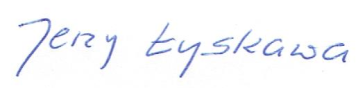 Jerzy Łyskawa